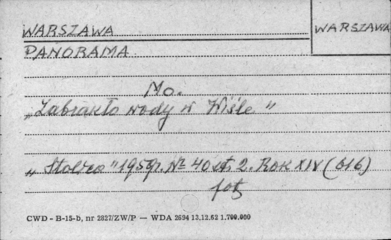 WARSZAWA
WARSZAWA
PANORAMA
Mo.
„Zabrakło wody w Wiśle"
„Stolica" 1959r. № 40 st. 2. Rok XIV (616)
fot.
CWD - B-15-b, nr 2827/ZW/P — WDA 2694 13.12.62 1,700.000